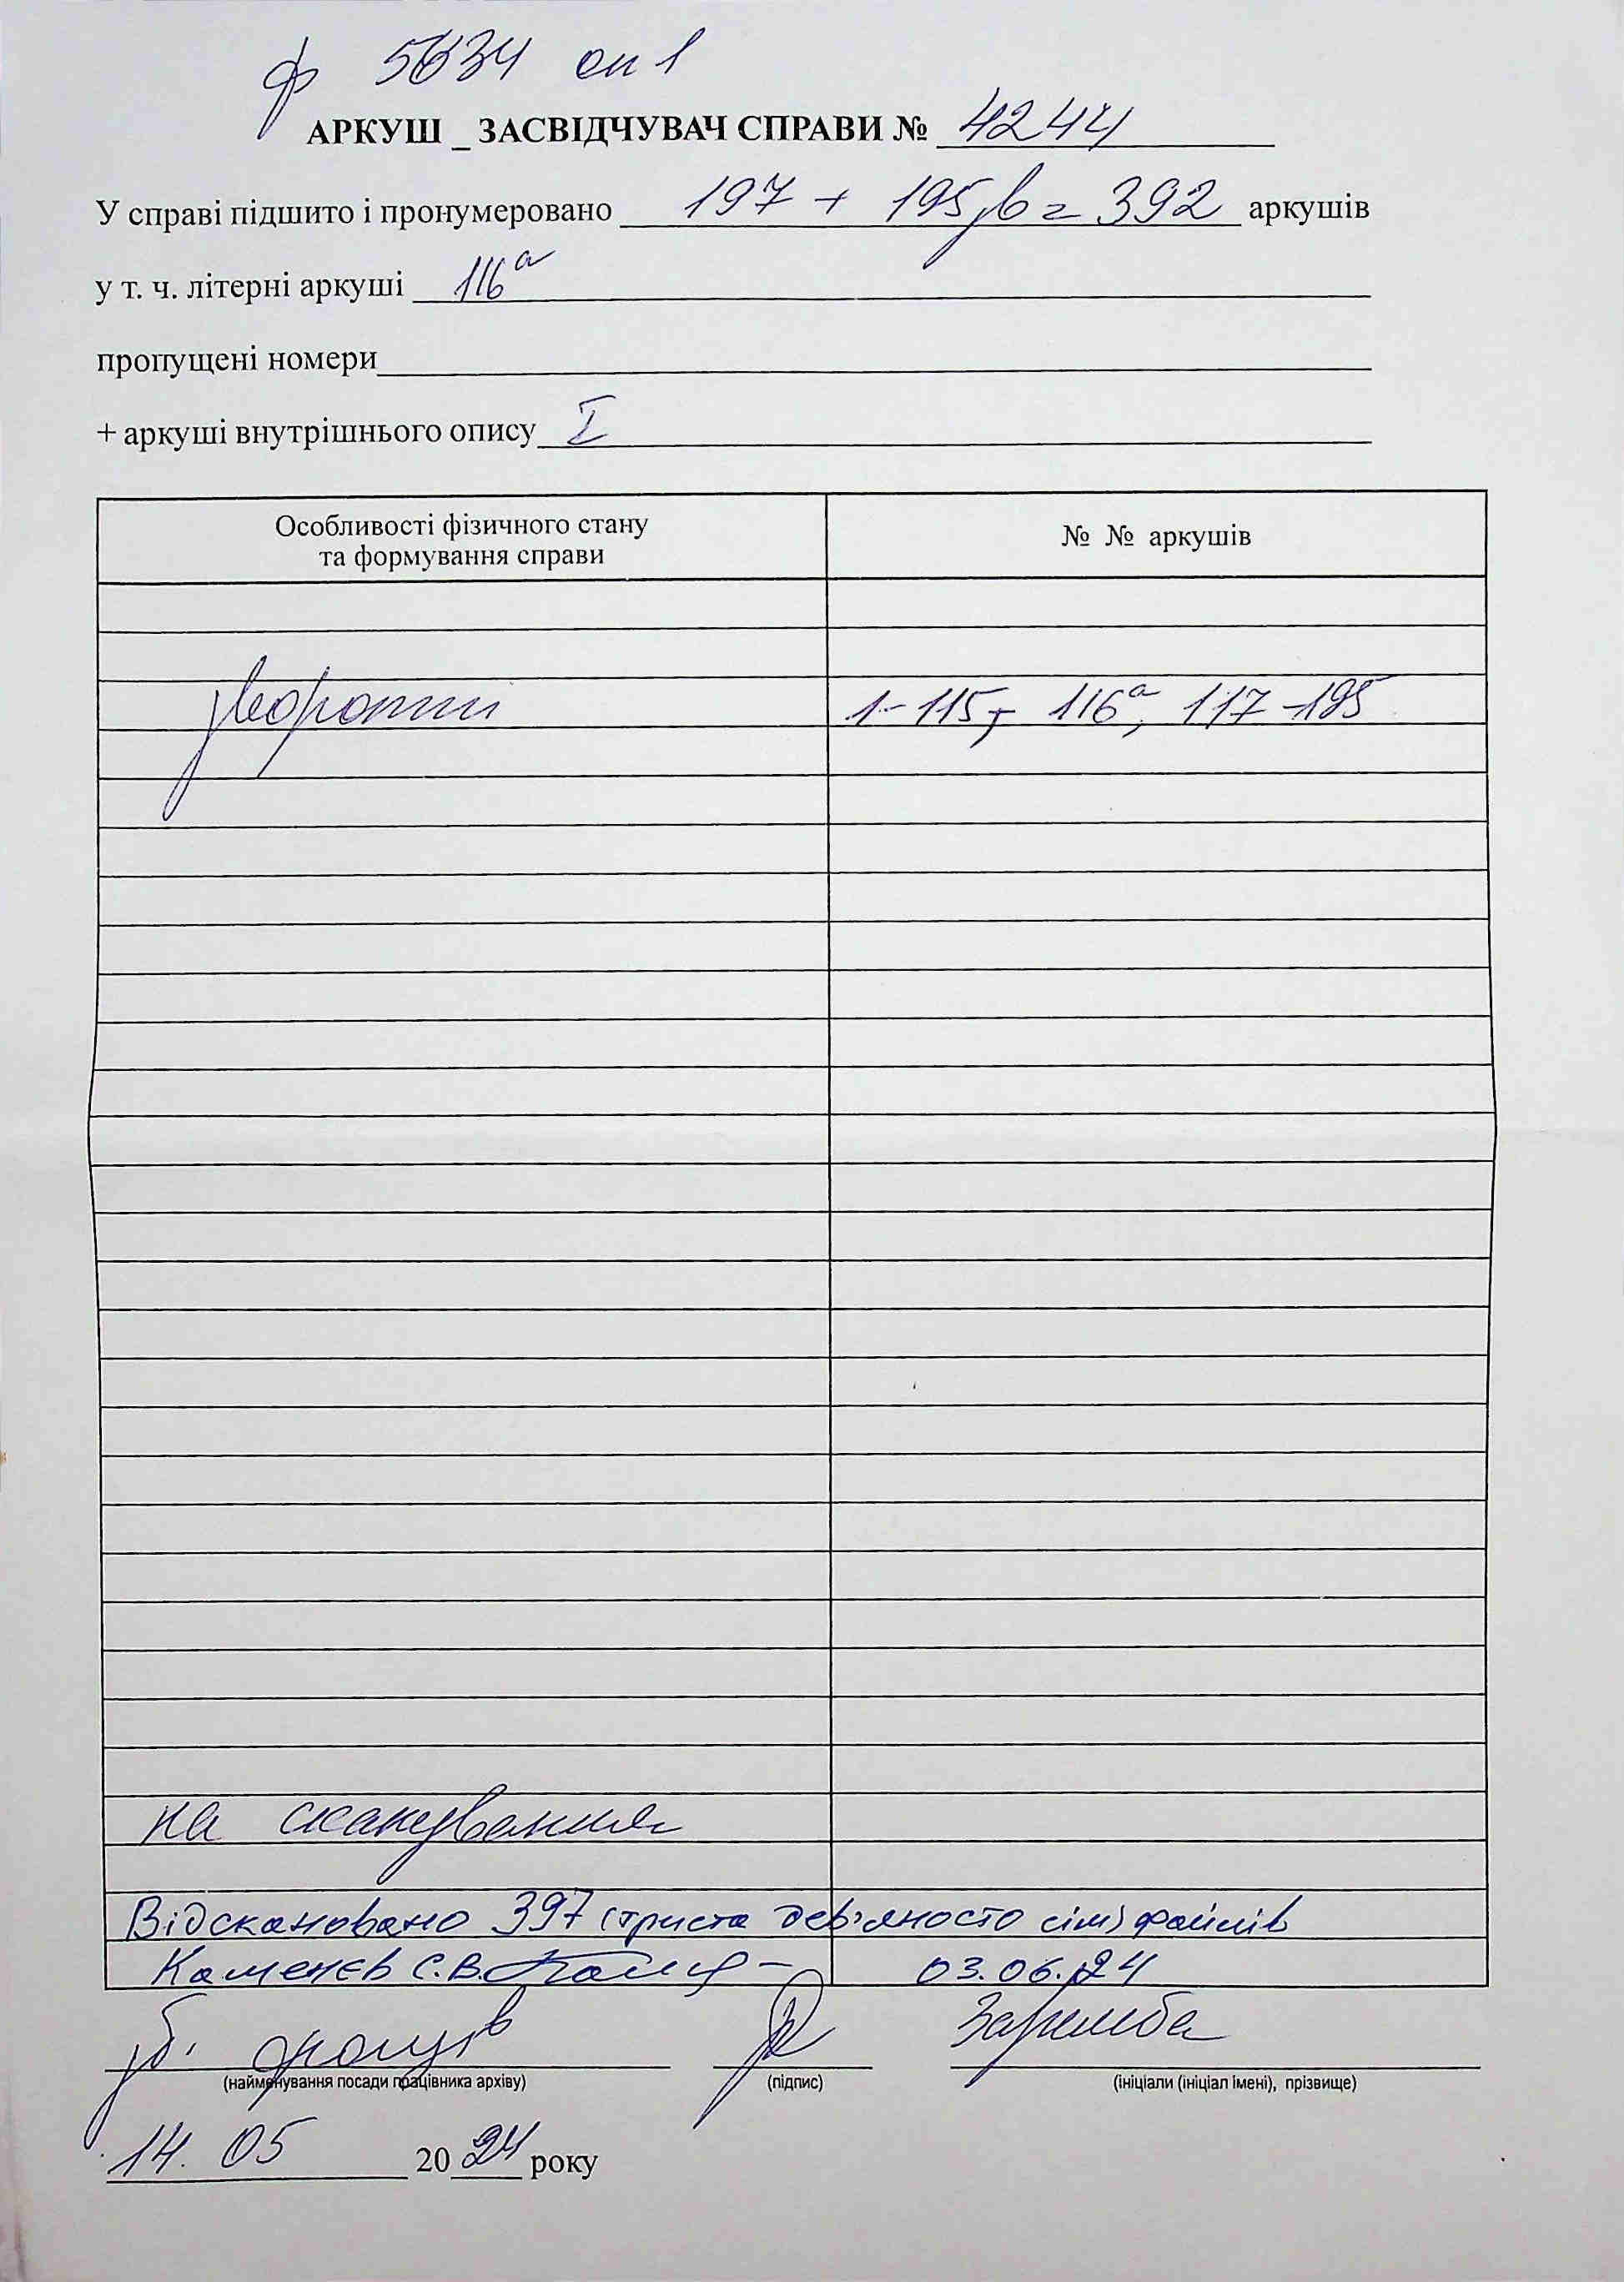 ф 5634 оп 1
АРКУШ _ ЗАСВІДЧУВАЧ СПРАВИ № 4244
У справі підшито і пронумеровано 197 + 195зв = 392 аркушів
у т. ч. літерні аркуші 116а
пропущені номери
+ аркуші внутрішнього опису I
Особливості фізичного стану
та формування справи
№ № аркушів
звороти 1-115, 116а, 117-195
на сканування
Відскановано 397 (триста дев'яносто сім) файлів
Каменєв С.В. 03.06.24
зб. фондів Заримба
(найменування посади працівника архіву) (підпис) (ініціали (ініціал імені), прізвище)
14. 05 2024 року